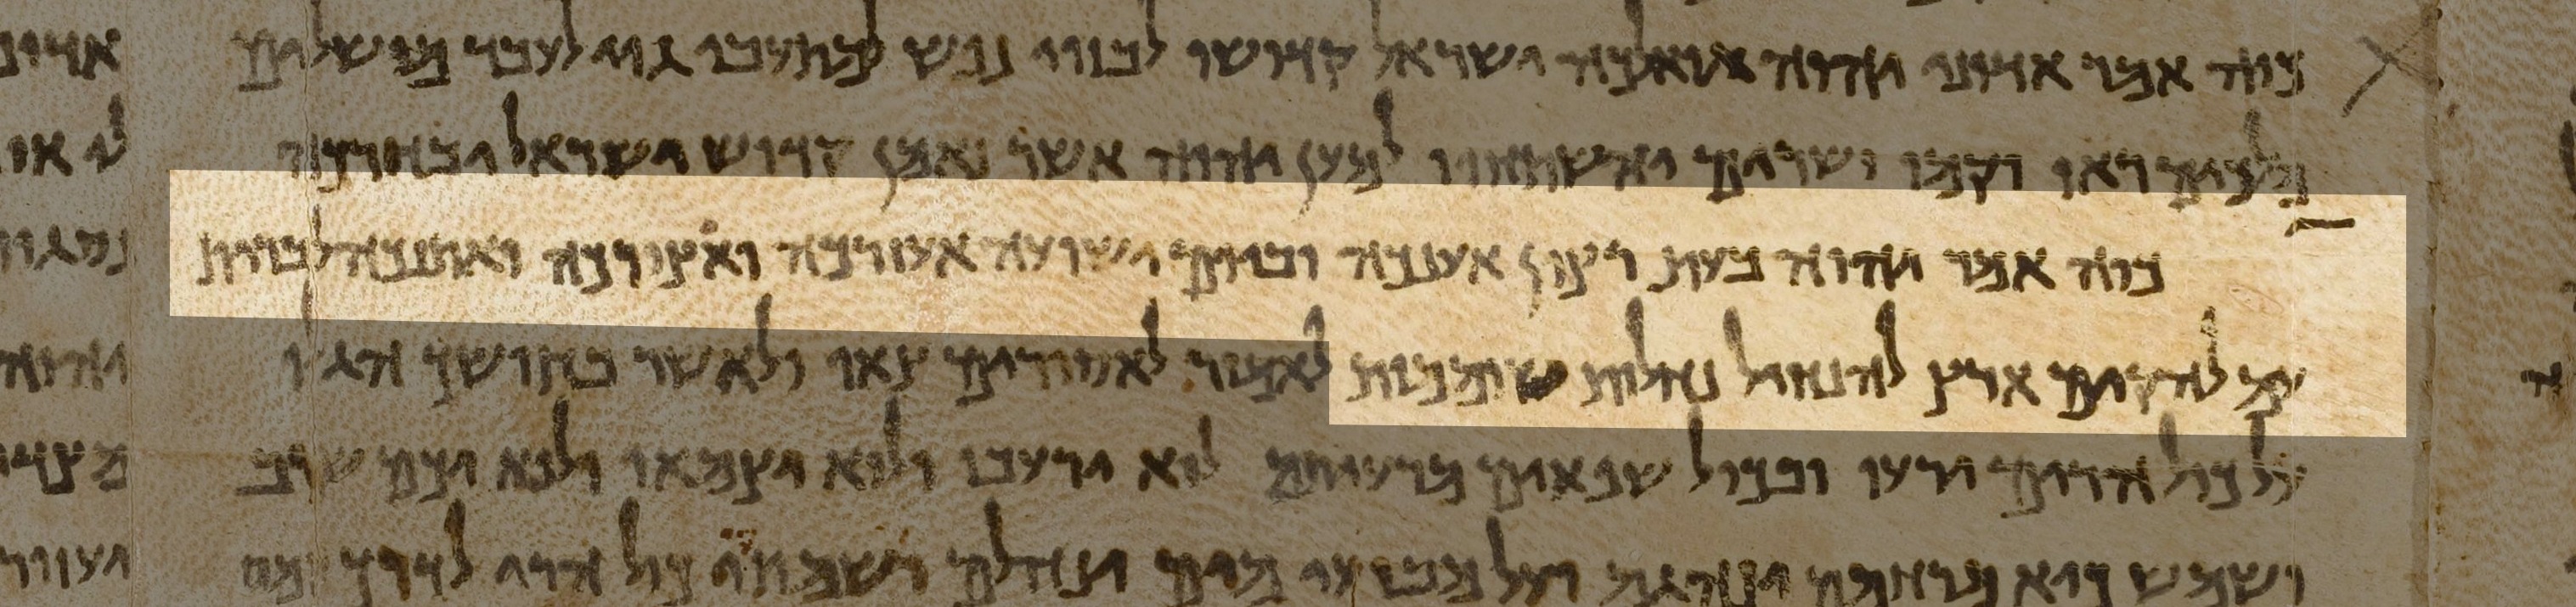 כוה אמר אדוני יהוה גואלכה ישראל קדושו לבזוי נפש למתעבי גוי לעבד מושלים
מלכים ראו וקמו ושרים והשתחוו למען יהוה אשר נאמן קדוש ישראל יבחורכה
כוה אמר יהוה בעת רצון אענכה וביום ישועה אעזורכה ואצורכה ואתנכה לברית
עם להקים ארץ להנחיל נחלות שוממות לאמור לאסורים צאו ולאשר בחושך
על כול הרים ירעו ובכול שפאים מרעיתם לוא ירעבו ולוא יצמאו ולוא יכם שרב
ושמש כיא מרחמם ינהגם ועל מבועי מים ינהלם ושמתי כול הרי לדרך